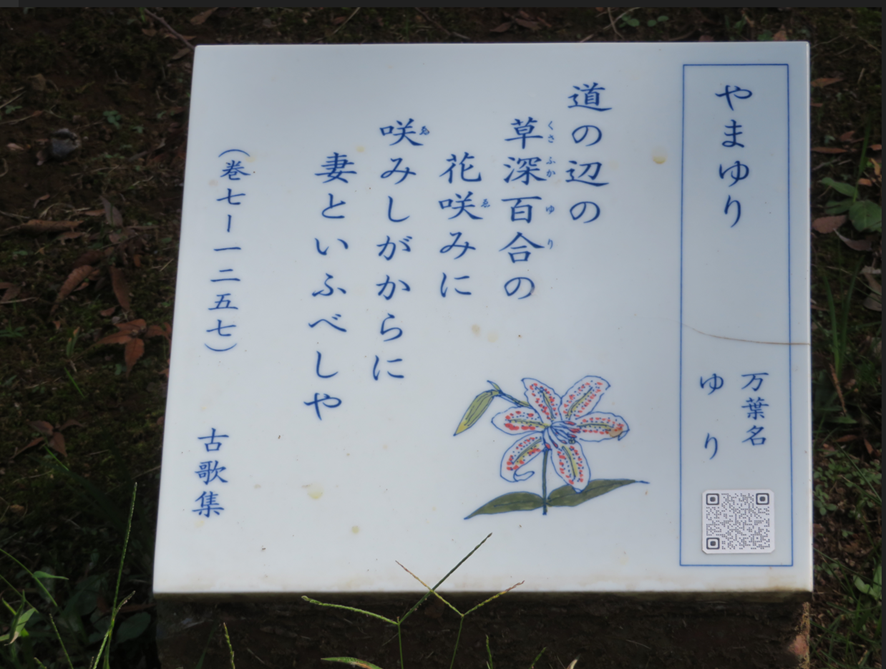 やまゆり
万葉名
ゆり
道の辺の
草深百合の
くさふかゆり
花咲みに
ゑ
咲みしがからに
ゑ
妻といふべしや
（巻七ー一二五七）
古歌集